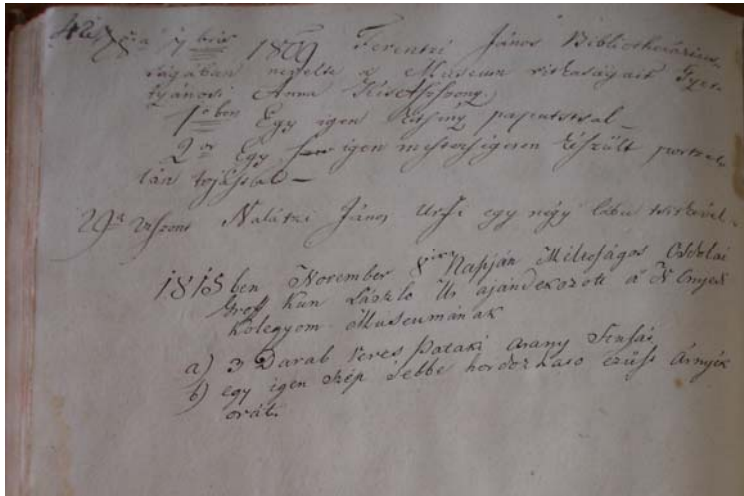 7bris 1809 Ferentzi János Bibliothecárius
ságában nevelte a Museum ritkaságait Gyer
tyánosi Anna KisAszszony.
1ő ben Egy igen kitsiny paputstsal
2or Egy igen mesterségesen készült portzel
lán tojással
29a viszont Nalátzi János Urfi egy négy lábu tsirkével
1815 ben November Napján Méltoságos Osdolai
Groff Kun László Ur ajándekozott a N Enyedi
Kolegyom Museumának
a) 3 Darab Veres Pataki arany
b) egy igen szép sebbe hordozhato ezüst Árnyék
orát.